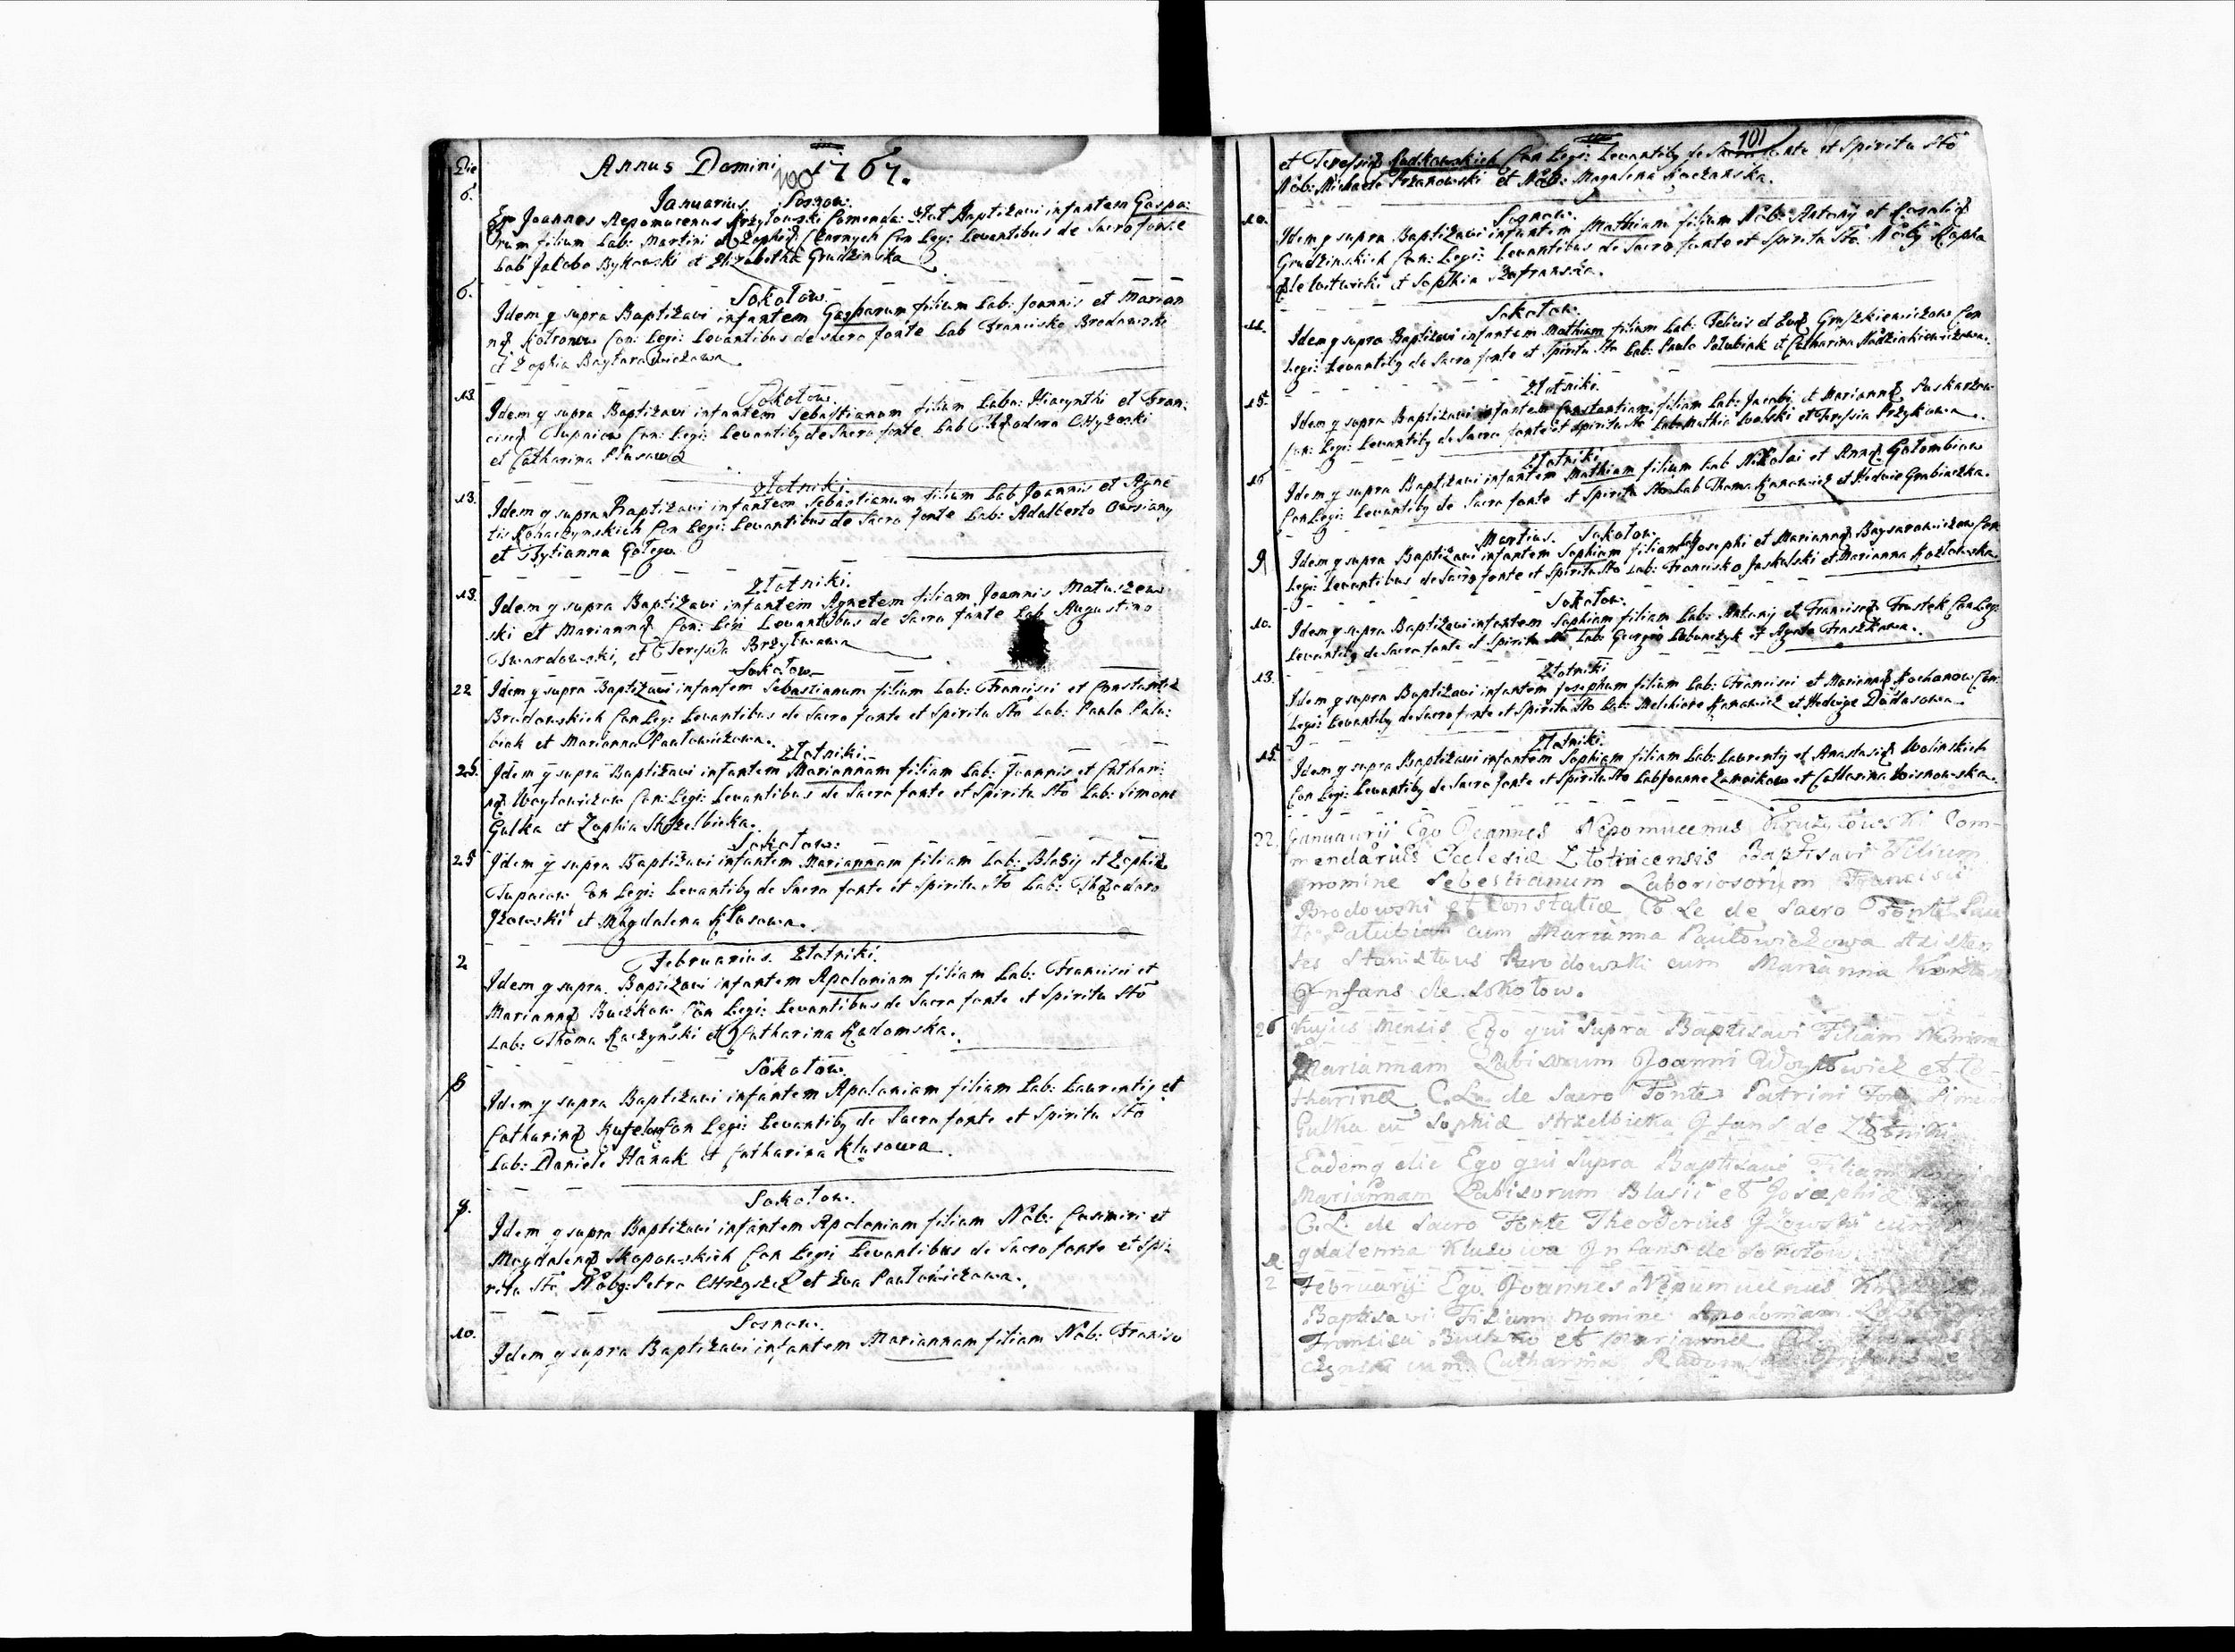 Die
Annus Domini 1767.
100
6.
Januarius. Sosnow.
Ego Joannes Nepomucenus Commenda: Baptizavi infantem Gaspa:
rum filium Lab: Martini et Zophiæ Czarnych Con Leg: Levantibus de Sacro fonte
Lab Jakobo Bykowski et Elizabetha Grudzinska
6.
Sokołow.
Idem q supra Baptizavi infantem Gasparum filium Lab: Joannis et Marian
næ Kotronow Con: Legi: Levantibus de sacro fonte Lab Francisko Brodowski
et Zophia
13.
Sokołow.
Idem q supra Baptizavi infantem Sebastianum filium Labo: Hiacynthi et Fran:
ciscæ Tupaiow Con: Legi: Levantibq de Sacro fonte Lab Theodoro
et Catharina Klusowa
13.
Złotniki.
Idem q supra Baptizavi infantem Sebastianum filium Lab Joannis et Agne
tis Con Legi: Levantibus de Sacro fonte Lab: Adalberto
et
13.
Złotniki.
Idem q supra Baptizavi infantem Agnetem filiam Joannis Matuszew
ski et Mariannæ Con: Legi Levantibus de Sacro fonte Lab Augustino
Twardowski, et Teressia Brzytwowa
Sokołow
22
Idem q supra Baptizavi infantem Sebastianum filium Lab: Francisci et Constantiæ
Brodowskich Con Leg: Levantibus de Sacro fonte et Spiritu Sto Lab: Paulo Palu:
biak et Marianna Pawłowiczowa.
Złotniki.
25.
Idem q supra Baptizavi infantem Mariannam filiam Lab: Joannis et Cathari
næ Woytowiczow Con: Legi: Levantibus de Sacro fonte et Spiritu Sto Lab: Simone
Gulka et Zophia Strzelbicka.
Sokołow:
25
Idem q supra Baptizavi infantem Mariannam filiam Lab: Blasij et Zophiæ
Tupaiow Con Legi: Levantibq de Sacro fonte et Spiritu Sto Lab: Theodoro
Gzowski et Magdalena Klusowa.
2
Februarius. Złotniki.
Idem q supra. Baptizavi infantem Apoloniam filiam Lab: Francisci et
Mariannæ Buczkow Con Legi: Levantibus de Sacro fonte et Spiritu Sto
Lab: Thoma Raczynski et Catharina Radomska.
8
Sokołow.
Idem q supra Baptizavi infantem Apoloniam filiam Lab: Laurentij et
Catharinæ Con Legi: Levantibq de Sacro fonte et Spiritu Sto
Lab: Daniele Hanak et Catharina Klusowa.
9.
Sokołow.
Idem q supra Baptizavi infantem Apoloniam filiam Nob: Casimiri et
Magdalenæ Skopowskich Con Legi Levantibus de Sacro fonte et Spi:
ritu Sto Nobq: Petro et Eva Pawłowiczowa.
10.
Sosnow.
Idem q supra Baptizavi infantem Mariannam filiam Nob: Francisci
101
et Teressiæ Rudkowskich Con Legi: Levantibq de Sacro fonte et Spiritu Sto
Nob: Michaele Przanowski et Nob: Magdalena
10.
Sosnow.
Idem q supra Baptizavi infantem Mathiam filium Nob: Antonij et Rosaliæ
Grudzinskich Con: Legi: Levantibus de Sacro fonte et Spiritu Sto. Nobq Rapha
ele Witwicki et Sophia Szafranska.
11.
Sokołow.
Idem q supra Baptizavi infantem Mathiam filium Lab: Felicis et Evæ Gruszkiewiczow Con
Legi: Levantibq de Sacro fonte et Spiritu Sto Lab: Paulo Palubiak et Catharina
15.
Złotniki.
Idem q supra Baptizavi infantem Constantiam filiam Lab: Jacobi et Mariannæ
Con: Legi: Levantibq de Sacro fonte et Spiritu Sto Lab: Mathia Wolski et Teressia
16
Złotniki.
Idem q supra Baptizavi infantem Mathiam filium Lab Nikolai et Annæ Gołombiow
Con Legi: Levantibq de Sacro fonte et Spiritu Sto Lab Thoma Kanawicz et Hedvige Grabiaszka.
9
Martius. Sokołow.
Idem q supra Baptizavi infantem Sophiam filiam Lab Josephi et Mariannæ Con
Legi: Levantibus de Sacro fonte et Spiritu Sto Lab: Francisko Jaskulski et Marianna Kozłowska.
10.
Sokołow.
Idem q supra Baptizavi infantem Sophiam filiam Lab: Antonij et Franciscæ Frustek Con Leg:
Levantibq de Sacro fonte et Spiritu Sto Lab: Georgio et Agata
13.
Złotniki
Idem q supra Baptizavi infantem Josephum filium Lab: Francisci et Mariannæ Kochanow Con:
Legi: Levantibq de Sacro fonte et Spiritu Sto Lab: Melchiore Kanawicz et Hedvige Dudasowa.
15.
Złotniki.
Idem q supra Baptizavi infantem Sophiam filiam Lab: Laurentij et Anastasiæ Wolinskich
Con Legi: Levantibq de Sacro fonte et Spiritu Sto Lab Joanne et Catharina Wisnowska.
22.
Januaurij Ego Joannes Nepomucenus Com-
mendarius Ecclesiæ Baptisavi Filium
nomine Sebestianum Laboriosorum Francisci
Brodowski et Constatiæ C Le de Sacro Fonte Pau
lo Palubiak cum Marianna Pawłowiczowa Asisten
tes Stanislaus Brodowski cum Marianna
Infans de Sokołow.
26
hujus Mensis Ego qui Supra Baptisavi Filiam Nomine
Mariannam Joanni Woytowicz et Ca-
tharinæ C. Le. de Sacro Fonte Patrini Simon
Gulka cu Sophia Strzelbicka Infans de Złotniki
Eademq die Ego qui Supra Baptisavi Filiam
Mariannam Blasii et Josephiæ
C. L. de Sacro Fonte Theodorius Gzowski cum Ma
gdalenna Kluzowa Infans de Sokołow.
2
Februarij Ego Joannes Nepumucenus
Baptisavi Filium nomine
Francisci et Mariannæ
cum Catharina Infans de